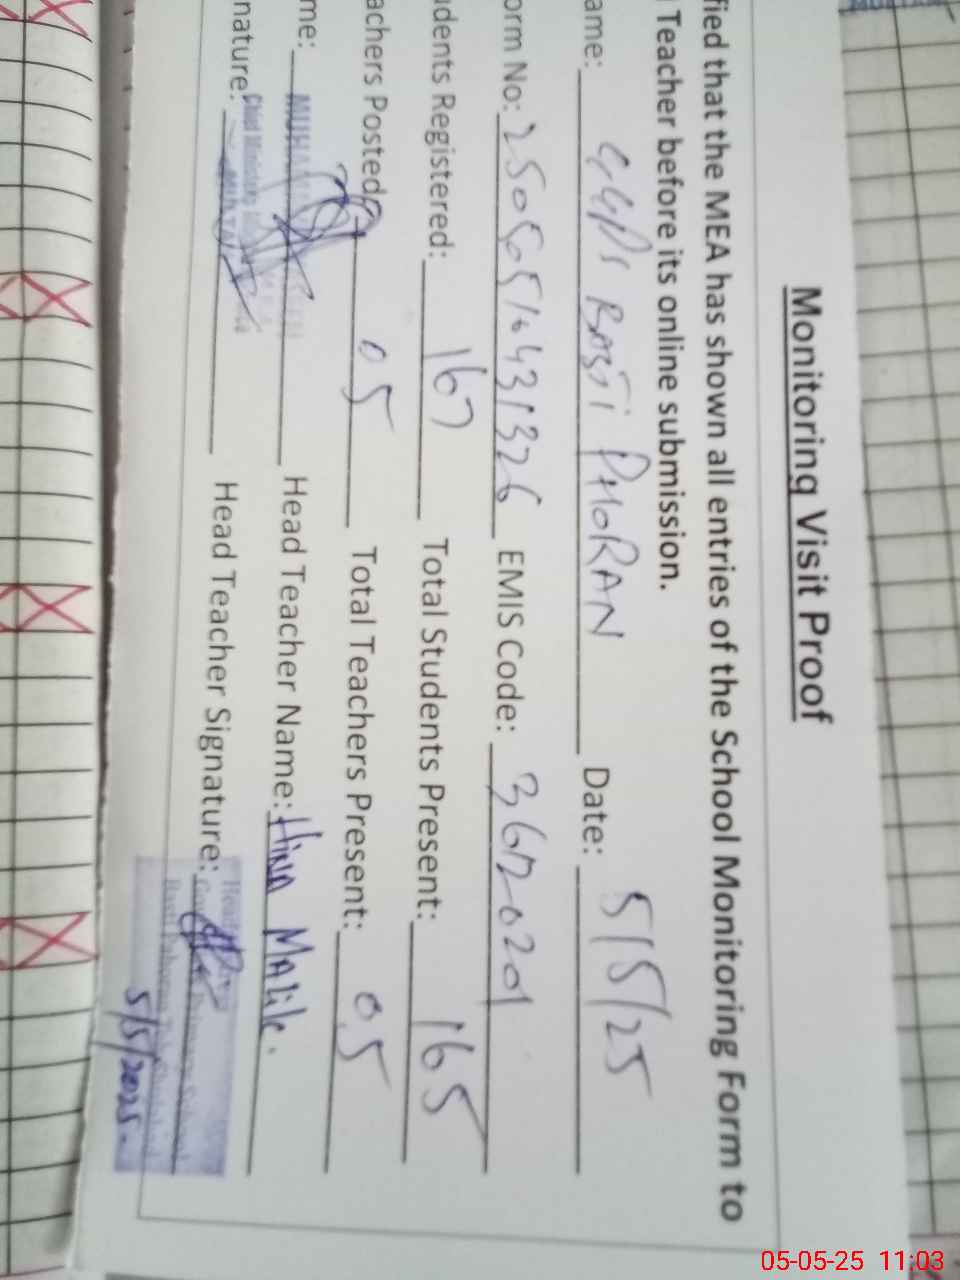 Monitoring Visit Proof
fied that the MEA has shown all entries of the School Monitoring Form to
Teacher before its online submission.
ame: GGPS BASTI PAHORAN Date: 5/5/25
orm No: 25050516431326 EMIS Code: 36120201
dents Registered: 167 Total Students Present: 165
achers Posted: 05 Total Teachers Present: 05
me: MUHAMMAD Head Teacher Name: Hina Malik.
nature: Head Teacher Signature:
5/5/2025.
05-05-25 11:03